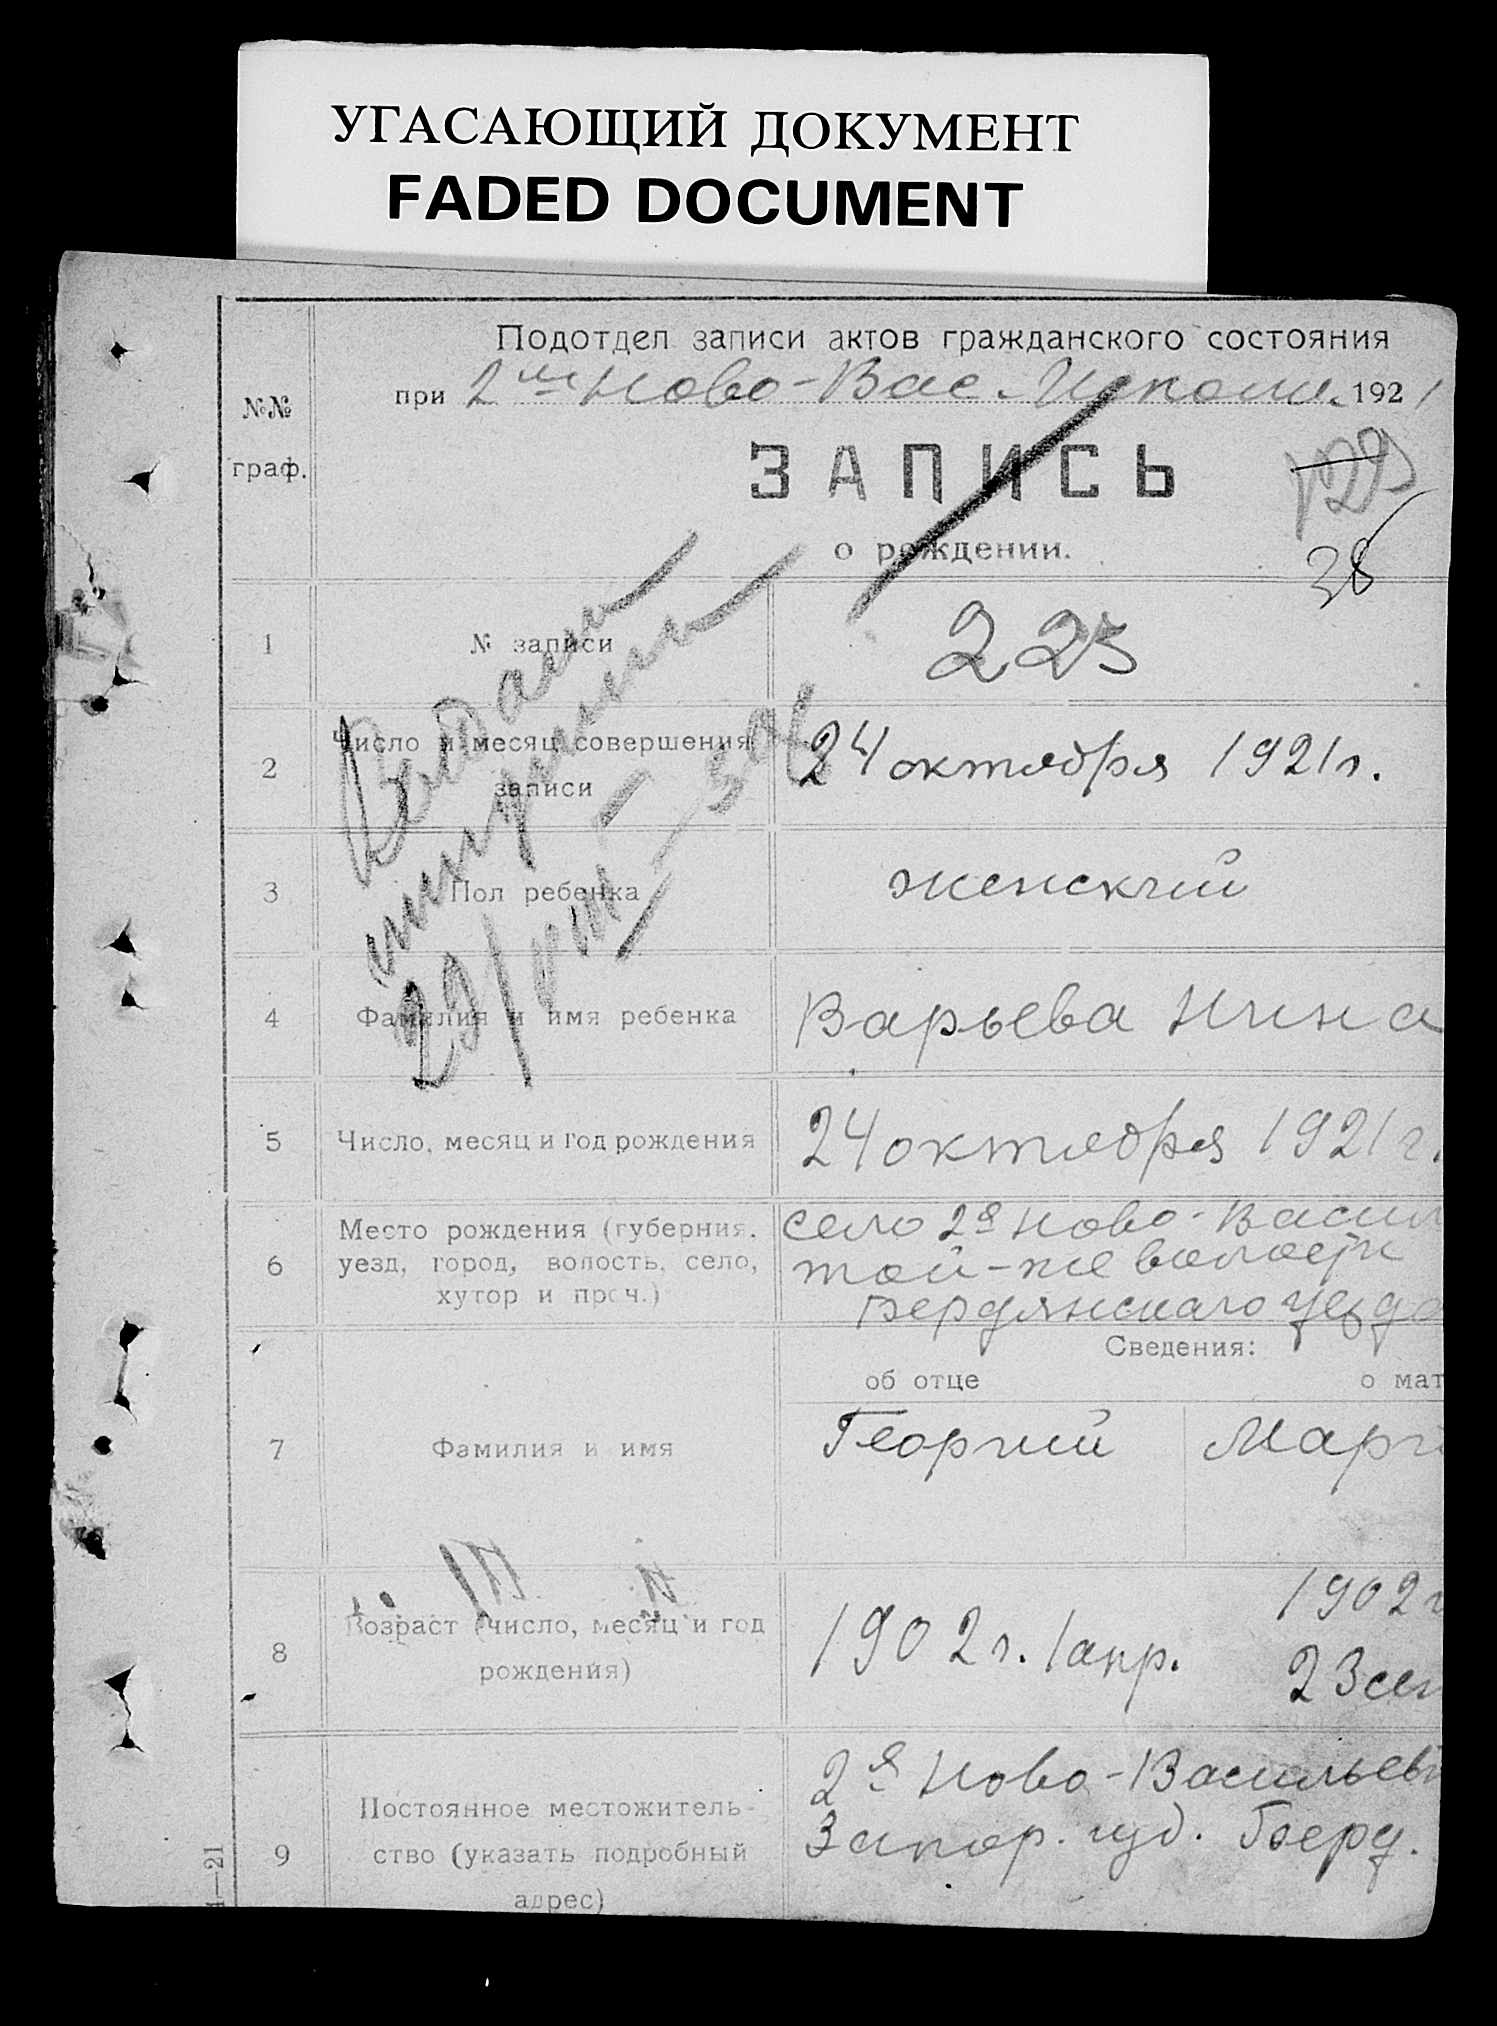 УГАСАЮЩИЙ ДОКУМЕНТ
FADED DOCUMENT
Подотдел записи актов гражданского состояния
№№
граф.
при 2м Ново-Вас 1921
ЗАПИСЬ
о рождении.
38
1 № записи 225
2 Число и месяц совершения
записи
24 октября 1921 г.
3 Пол ребенка женский
4 Фамилия и имя ребенка Варьева Нина
5 Число, месяц и год рождения 24 октября 1921 г.
6 Место рождения (губерния,
уезд, город, волость, село,
хутор и проч.)
село 2е Ново-Васил
той-же волости
Бердянскаго уезда
Сведения:
об отце о мат
7 Фамилия и имя Георгий Мари
8 Возраст (число, месяц и год
рождения)
1902 г. 1 апр.
1902 г
23 сен
9 Постоянное местожитель-
ство (указать подробный
адрес)
2е Ново-Васильев
Запор. губ. Берд.
Выдан
29/
—21